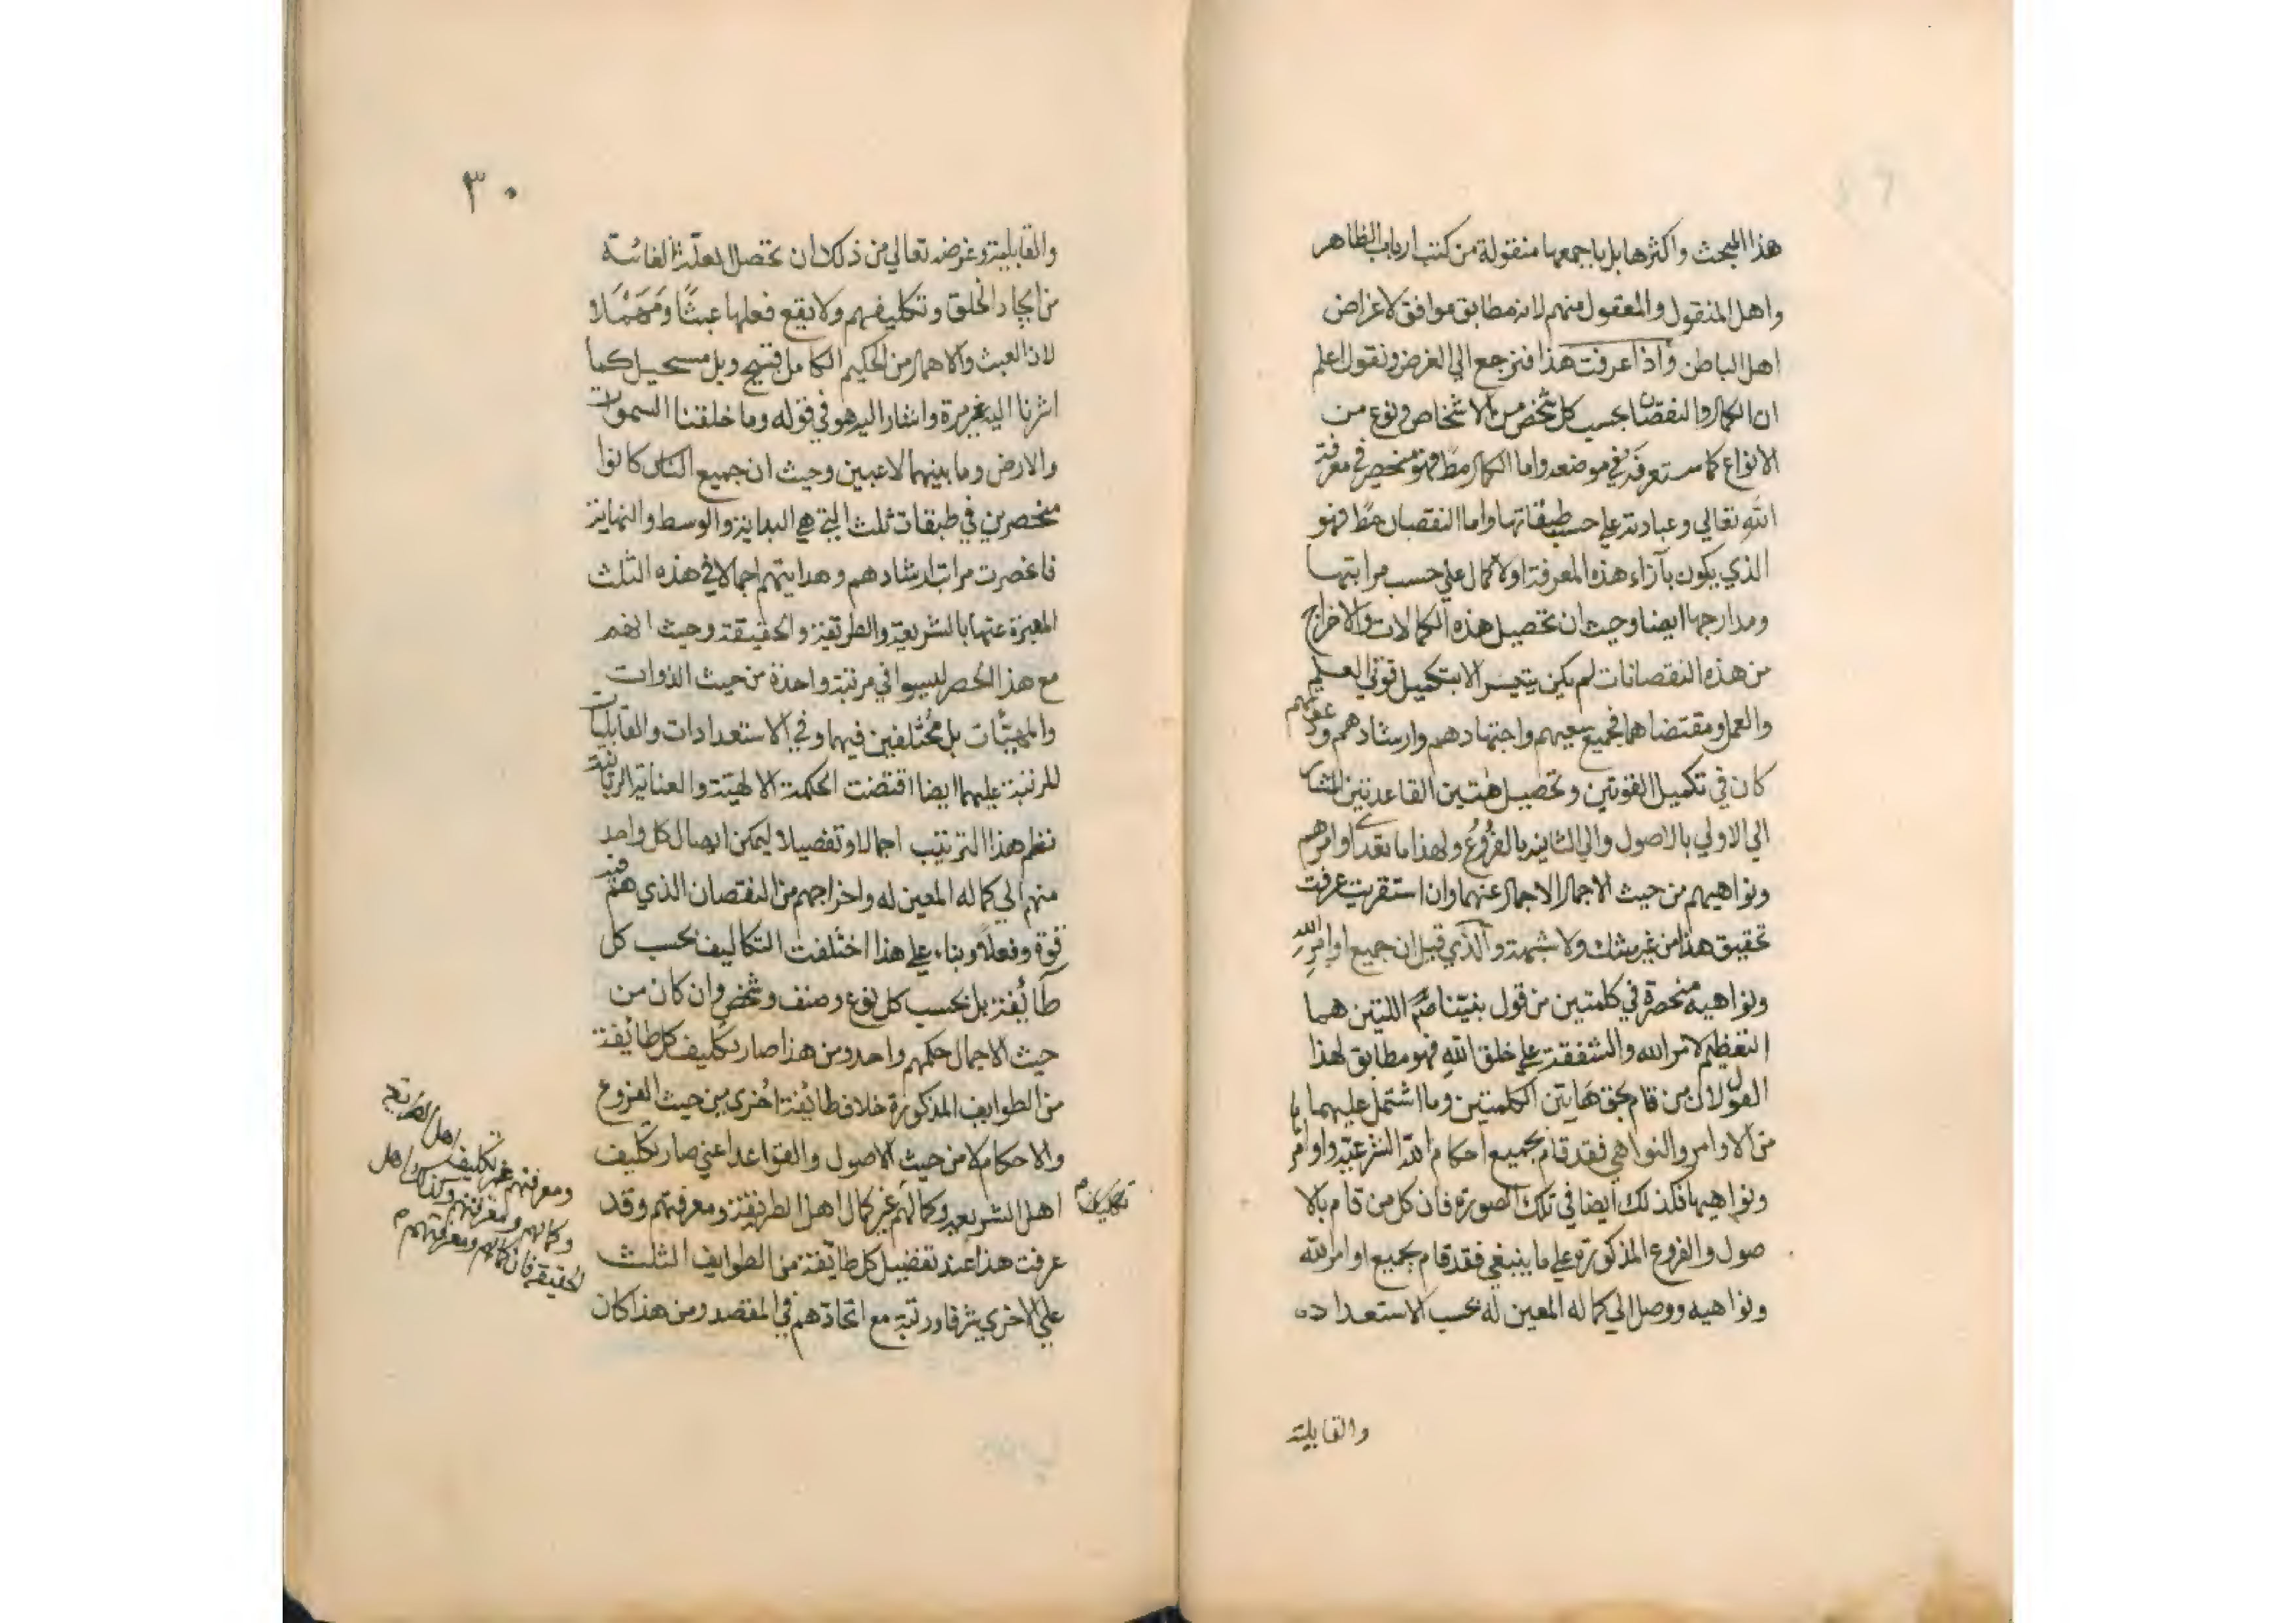 هذا المبحث واكثرها بل باجمعها منقولة من كتب ارباب الظاهر
واهل المنقول والمعقول منهم لانه مطابق موافق لاغراض
اهل الباطن واذا عرفت هذا فنرجع الي الغرض ونقول اعلم
ان الكمال والنقصان بحسب كل شخص من الاشخاص ونوع من
الانواع كما ستعرفه في موضعه واما الكمال مط فهو منحصر في معرفة
الله تعالي وعبادته علي حسب طبقاتها واما النقصان مط فهو
الذي يكون بآزاء هذه المعرفة اولا كمال علي حسب مراتبها
ومدارجها ايضا وحيث ان تحصيل هذه الكمالات والاخراج
من هذه النقصانات لم يكن يتيسر الا بتكميل قوتي العلم
والعمل ومقتضاهما فجميع سعيهم واجتهادهم وارشادهم ودعوتهم
كان في تكميل القوتين وتحصيل هتين القاعدتين المشار
الي الاولي بالاصول والي الثانية بالفروع ولهذا ما تعدي اوامرهم
ونواهيهم من حيث الاجمال الاجمال عنهما وان استقريت عرفت
تحقيق هذا من غير شك ولا شبهة والذي قيل ان جميع اوامر الله
ونواهيه منحصرة في كلمتين من قول نبيّنا صم اللتين هما
التعظيم لامر الله والشفقة علي خلق الله فهو مطابق لهذا
القول لان من قام بحق هاتين الكلمتين وما اشتمل عليهما
من الاوامر والنواهي فقد قام بجميع احكام الله الشرعية واوامر
ونواهيها فكذلك ايضا في تلك الصورة فان كل من قام بالا
صول والفروع المذكورة علي ما ينبغي فقد قام بجميع اوامر الله
ونواهيه ووصل الي كماله المعين له بحسب الاستعداد
والقابلية
٣٠
والقابلية وغرضه تعالي من ذلك ان تحصل العلة الغائية
من ايجاد الخلق وتكليفهم ولا يقع فعلها عبثًا ومهملا
لان العبث والاهمال من الحكيم الكامل قبيح وبل مستحيل كما
اشرنا اليه غير مرة واشار اليه هو في قوله وما خلقنا السموات
والارض وما بينهما لاعبين وحيث ان جميع الناس كانوا
منحصرين في طبقات ثلث التي هي البداية والوسط والنهاية
فانحصرت مراتب ارشادهم وهدايتهم اجمالا في هذه الثلث
المعبرة عنها بالشريعة والطريقة والحقيقة وحيث انهم
مع هذا الحصر ليسوا في مرتبة واحدة من حيث الذوات
والمهيّات بل مختلفين فيها وفي الاستعدادات والقابليات
المرتبة عليهما ايضا اقتضت الحكمة الالهية والعناية الربانية
نظم هذا الترتيب اجمالا وتفصيلا ليمكن ايصال كل واحد
منهم الي كماله المعين له واخراجهم من النقصان الذي هم فيه
قوة وفعلا وبناء علي هذا اختلفت التكاليف بحسب كل
طائفة بل بحسب كل نوع وصنف وشخص وان كان من
حيث الاجمال حكمهم واحد ومن هذا صار تكليف كل طائفة
من الطوايف المذكورة خلاف طائفة اخري من حيث الفروع
والاحكام لا من حيث الاصول والقواعد اعني صار تكليف
اهل الشريعة وكمالهم غير كمال اهل الطريقة ومعرفتهم وقد
عرفت هذا عند تفضيل كل طائفة من الطوايف الثلث
علي الاخري شرفا ورتبة مع اتحادهم في المقصد ومن هذا كان
ومعرفتهم غير تكليف اهل الطريقة
وكمالهم ومعرفتهم وكذلك اهل
الحقيقة فان كمالهم ومعرفتهم